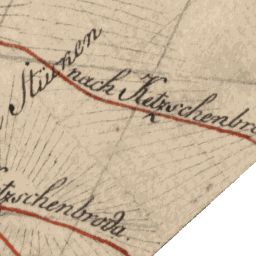 Stürzen
nach Ketzschenbro
tzschenbroda.